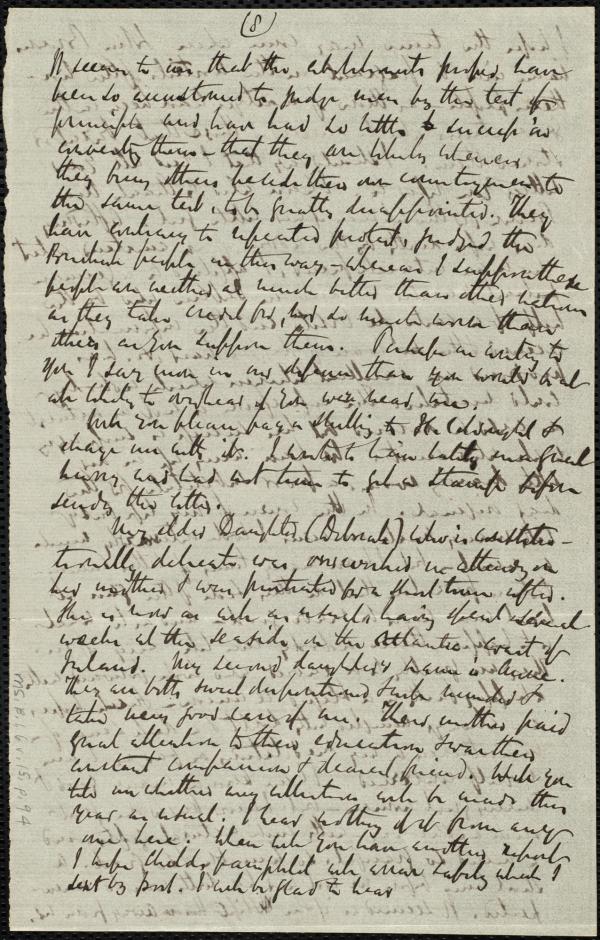 (8)
It seems to me that the abolitionists proper have
been so accustomed to judge men by the test of
principle and have had so little success in
converting them - that they are likely whenever
they bring others beside their own countrymen to
the same test, to be greatly disappointed. They
have contrary to repeated protest, judged the
British people in this way - whereas I suppose these
people are neither as much better than other nations
as they take credit for, nor so much worse than
others as you suppose them. Perhaps in writing to
you I say more in our defence than you would be at
all likely to overhear if you were near me.
Will you please pay a shilling to
charge me with it. I wrote to him lately in a great
hurry and had not time to get a stamp before
sending the letter.
My elder Daughter (Deborah) who is constitu-
tionally delicate was overworked in attending on
her mother & was prostrated for a short time after.
She is now as well as usual, having spent several
weeks at the seaside on the Atlantic coast of
Ireland. My second daughter's name is Anne.
They are both sweet dispositioned & minded &
take very good care of me. Their mother paid
great attention to their education & was their
constant companion & dearest friend. Will you
tell me whether any collection will be made this
year as usual. I hear nothing of it from any
one here. When will you have another report
I hope Child's pamphlet will arrive safely which I
sent by post. I will be glad to hear
Ms.B.1.6 v.15, p.94